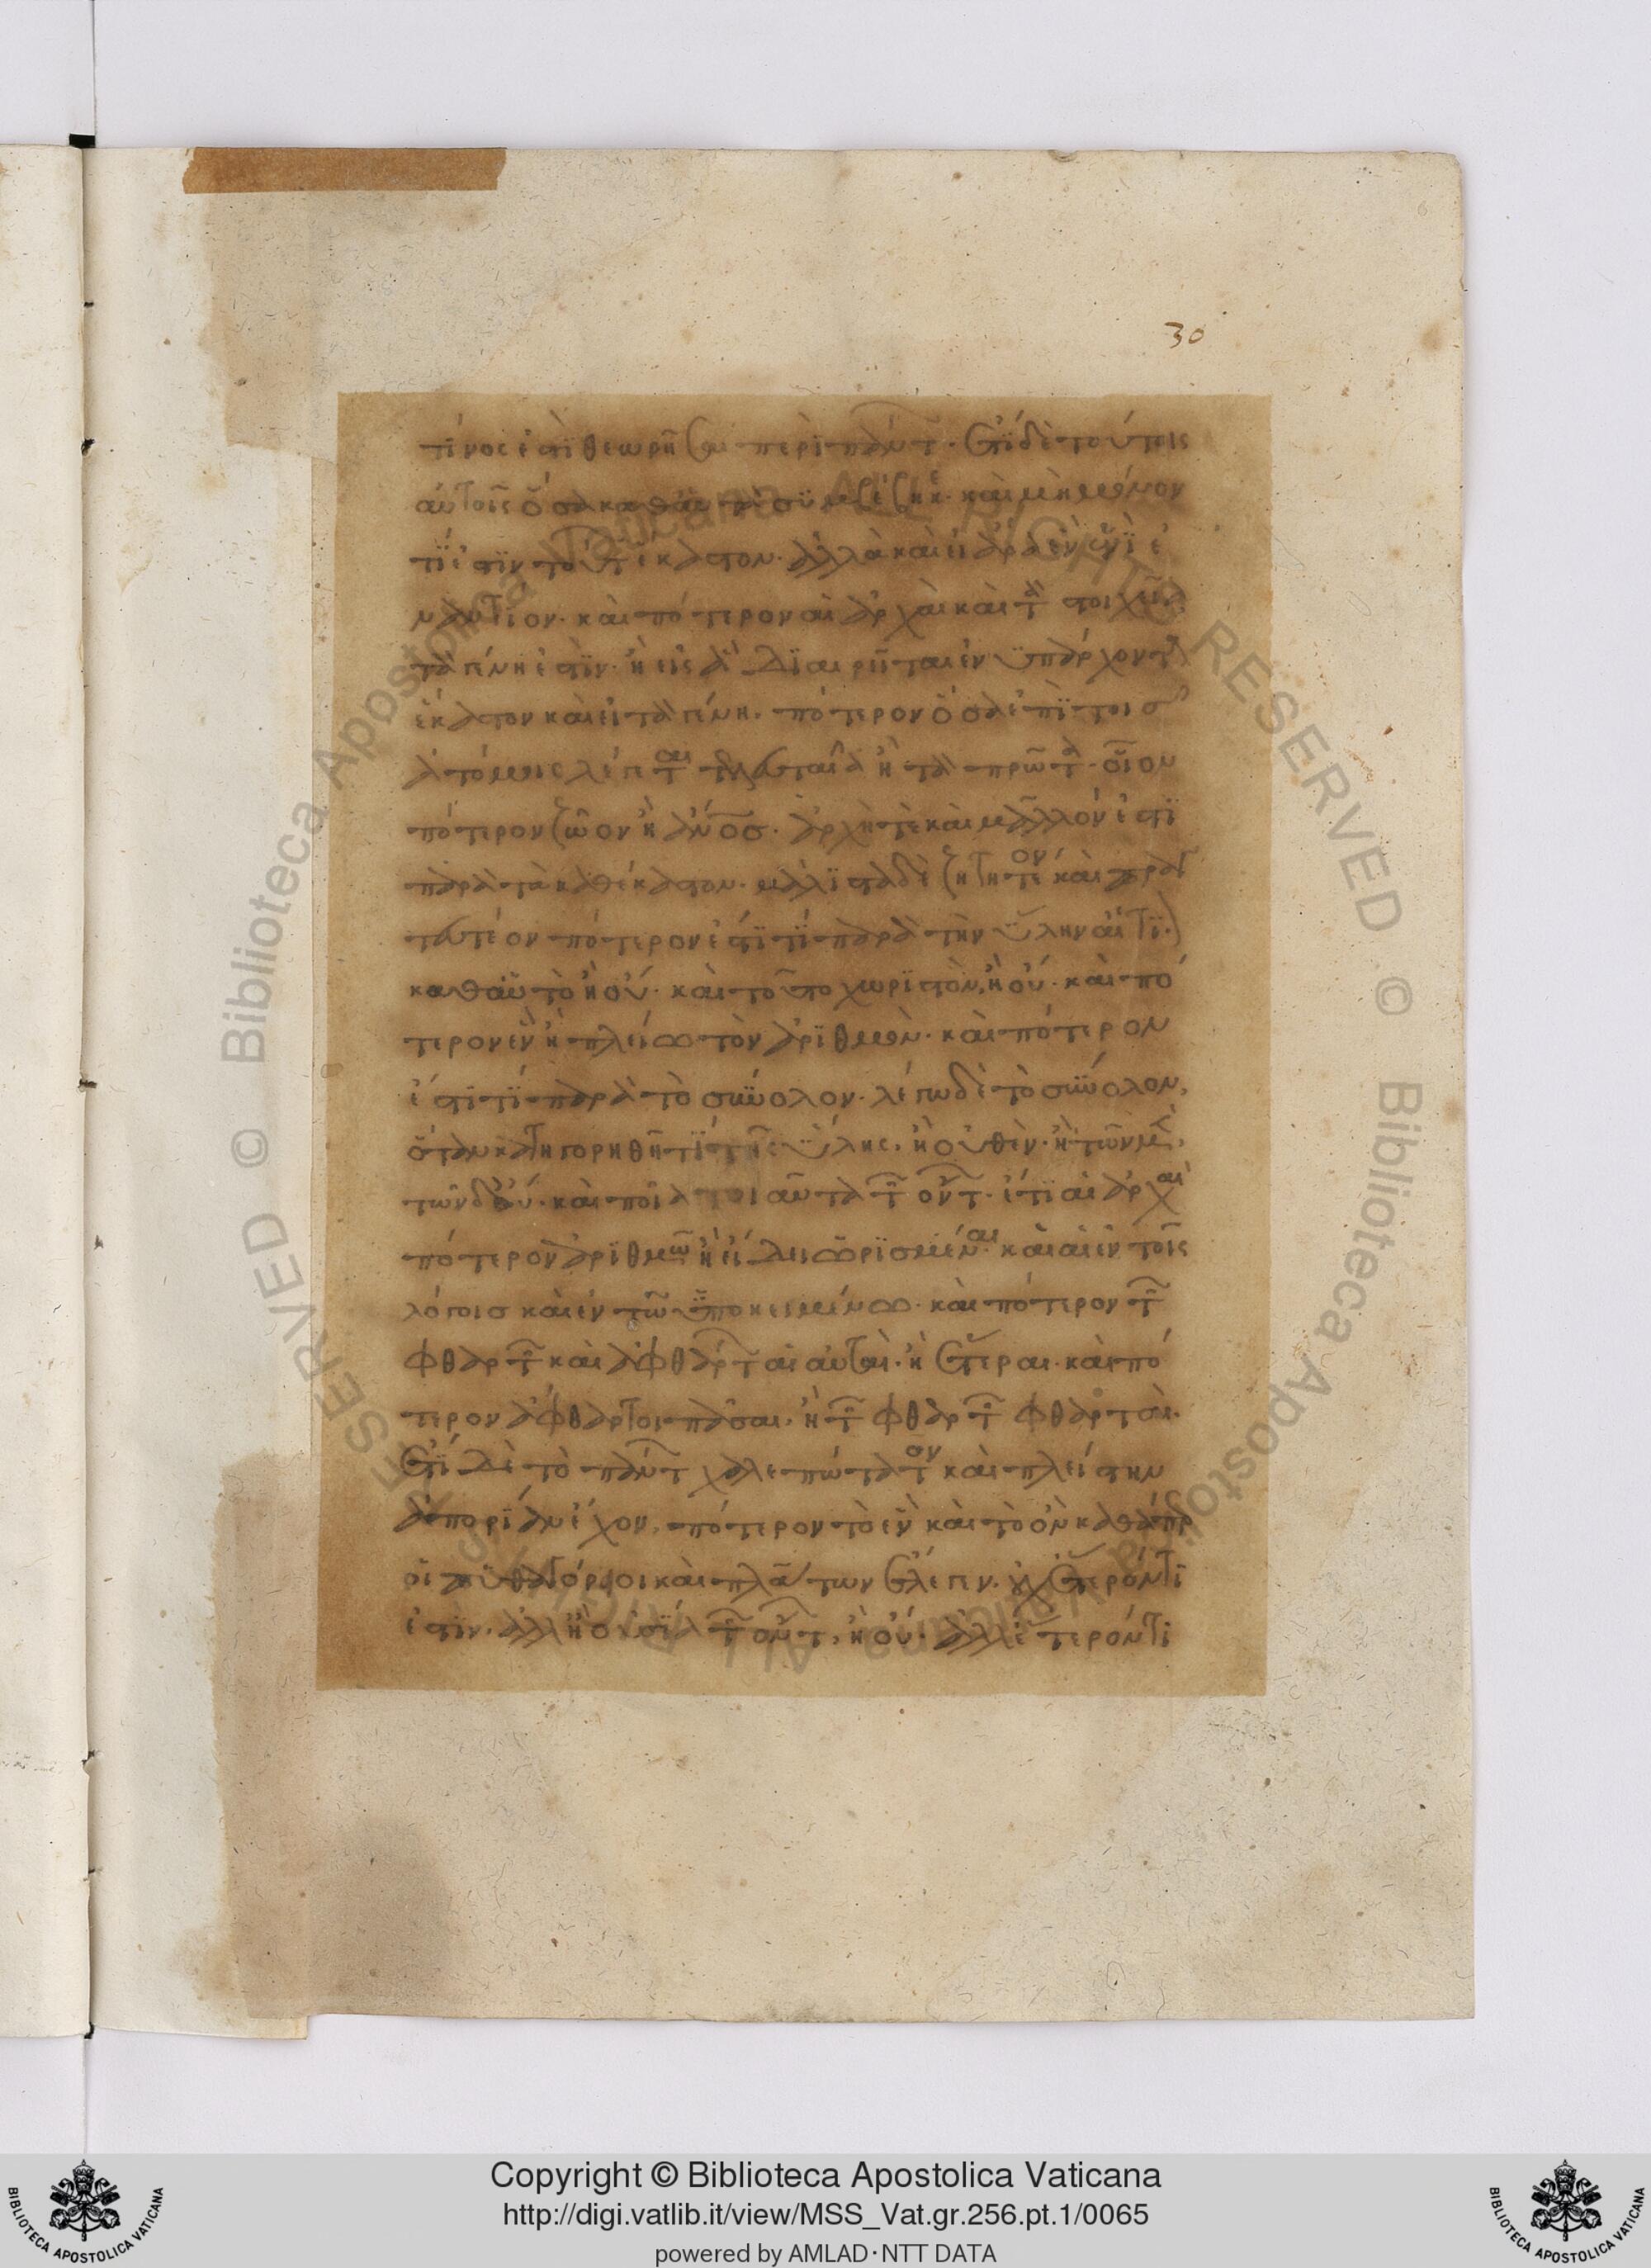 30
τίνος ἐστὶ θεωρῆσαι περὶ πάντ͂. ἔτι δὲ τούτοις
αὐτοῖς ὅσα καθ αὑτὰ συμβέβηκε. καὶ μὴ μόνον
τί ἐστιν τούτ͂ ἕκαστον. ἀλλὰ καὶ εἰ ἄρα ἓν ἑνὶ ἐ
ναντίον. καὶ πότερον αἱ ἀρχαὶ καὶ τὰ στοιχεῖα
τὰ γένη ἐστὶν. ἢ εἰς ἃ διαιρεῖται ἐνϋπάρχοντα
ἕκαστον καὶ εἰ τὰ γένη. πότερον ὅσα ἐπὶ τοῖσ
ἀτόμοις λέγεται τελευταῖα ἢ τὰ πρῶτα. οἷον
πότερον ζῶον ἢ ἄνοσ. ἀρχή τε καὶ μᾶλλόν ἐστι
παρὰ τὰ καθ έκαστον. μάλιστα δὲ ζητητέον καὶ πραγ
τευτέον πότερον ἐστί τί παρὰ τὴν ὕλην αἴτι)
καθ αὑτὸ ἢ οὔ. καὶ τοῦτο χωριστὸν, ἢ οὔ. καὶ πό
τερον ἓν ἢ πλείω τὸν ἀριθμὸν. καὶ πότερον
ἔστι τί παρὰ τὸ σύνολον. λέγω δὲ τὸ σύνολον,
ὅταν κατηγορηθῆ τί τῆς ὕλης. ἢ οὐθὲν. ἢ τῶν μὲ,
τῶν δ οὔ. καὶ ποῖα τοιαῦτα τ͂ ὄντ͂. ἔτι αἱ ἀρχαὶ
πότερον ἀριθμῶ ἢ εἴδει ὡρισμέναι καὶ αἱ ἐν τοῖς
λόγοισ καὶ ἐν τῶ ὑποκειμένω. καὶ πότερον τ͂
φθαρτ͂ καὶ ἀφθάρτ͂ αἱ αὐταὶ. ἢ ἕτεραι. καὶ πό
τερον ἄφθαρτοι πᾶσαι. ἢ τ͂ φθαρτ͂ φθαρταὶ.
ἔτι δὲ τὸ πάντ͂ χαλεπώτατον καὶ πλείστην
ἀπορίαν ἔχον, πότερον τὸ ἓν καὶ τὸ ὂν καθάπρ
οἱ πυθαγόρειοι καὶ πλάτων ἔλεγεν. οὐχ ἕτερόν τι
ἐστιν. ἀλλ ἢ οὐσία τ͂ ὄντ͂, ἢ οὔ. ἀλλ ἕτερόν τι
Copyright © Biblioteca Apostolica Vaticana
http://digi.vatlib.it/view/MSS_Vat.gr.256.pt.1/0065
powered by AMLAD·NTT DATA